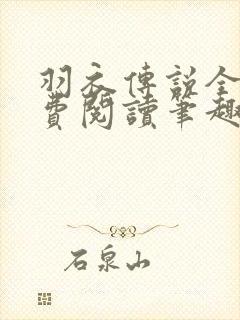 羽衣傳說全
費閱讀筆趣
石泉山